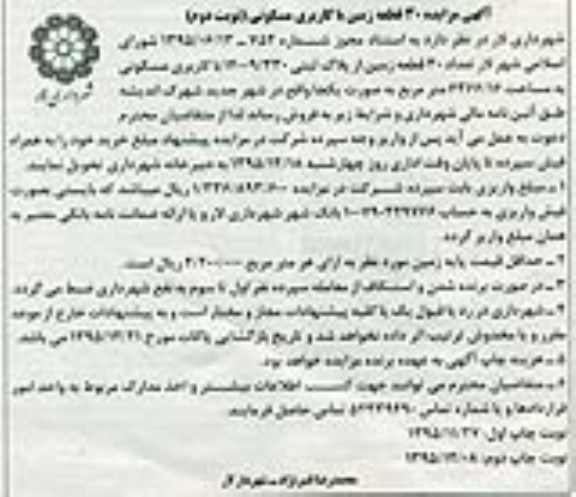 آگهی مزایده ۳۰ قطعه زمین با کاربری مسکونی (نوبت دوم)
شهرداری لار در نظر دارد به استناد مجوز شماره ۷۵۲ ـ ۱۳۹۵/۰۶/۱۳ شورای
اسلامی شهر لار تعداد ۳۰ قطعه زمین از پلاک ثبتی با کاربری مسکونی
به مساحت متر مربع به صورت یکجا واقع در شهر جدید شهرک اندیشه
طبق آئین نامه مالی شهرداری و شرایط زیر به فروش رساند لذا از متقاضیان محترم
دعوت به عمل می آید پس از واریز وجه سپرده شرکت در مزایده پیشنهاد مبلغ خرید خود را به همراه
فیش سپرده تا پایان وقت اداری روز چهارشنبه ۱۳۹۵/۱۲/۱۸ به دبیرخانه شهرداری تحویل نمایند.
۱ ـ مبلغ واریزی بابت سپرده شرکت در مزایده ریال میباشد که بایستی بصورت
فیش واریزی به حساب بانک شهر شهرداری لار و یا ارائه ضمانت نامه بانکی معتبر به
همان مبلغ واریز گردد.
۲ ـ حداقل قیمت پایه زمین مورد نظر به ازای هر متر مربع ریال است.
۳ ـ در صورت برنده شدن و استنکاف از معامله سپرده نفر اول تا سوم به نفع شهرداری ضبط می گردد.
۴ ـ شهرداری در رد یا قبول یک یا کلیه پیشنهادات مختار و مختار است و به پیشنهادات خارج از موعد
مقرر و یا مخدوش ترتیب اثر داده نخواهد شد و تاریخ بازگشایی پاکات مورخ ۱۳۹۵/۱۲/۲۱ می باشد.
۵ ـ هزینه چاپ آگهی به عهده برنده مزایده خواهد بود.
۶ ـ متقاضیان محترم می توانند جهت کسب اطلاعات بیشتر و اخذ مدارک مربوط به واحد امور
قراردادها و یا شماره تماس تماس حاصل فرمایند.
نوبت چاپ اول: ۱۳۹۵/۱۱/۲۷
نوبت چاپ دوم: ۱۳۹۵/۱۲/۰۸
شهردار لار